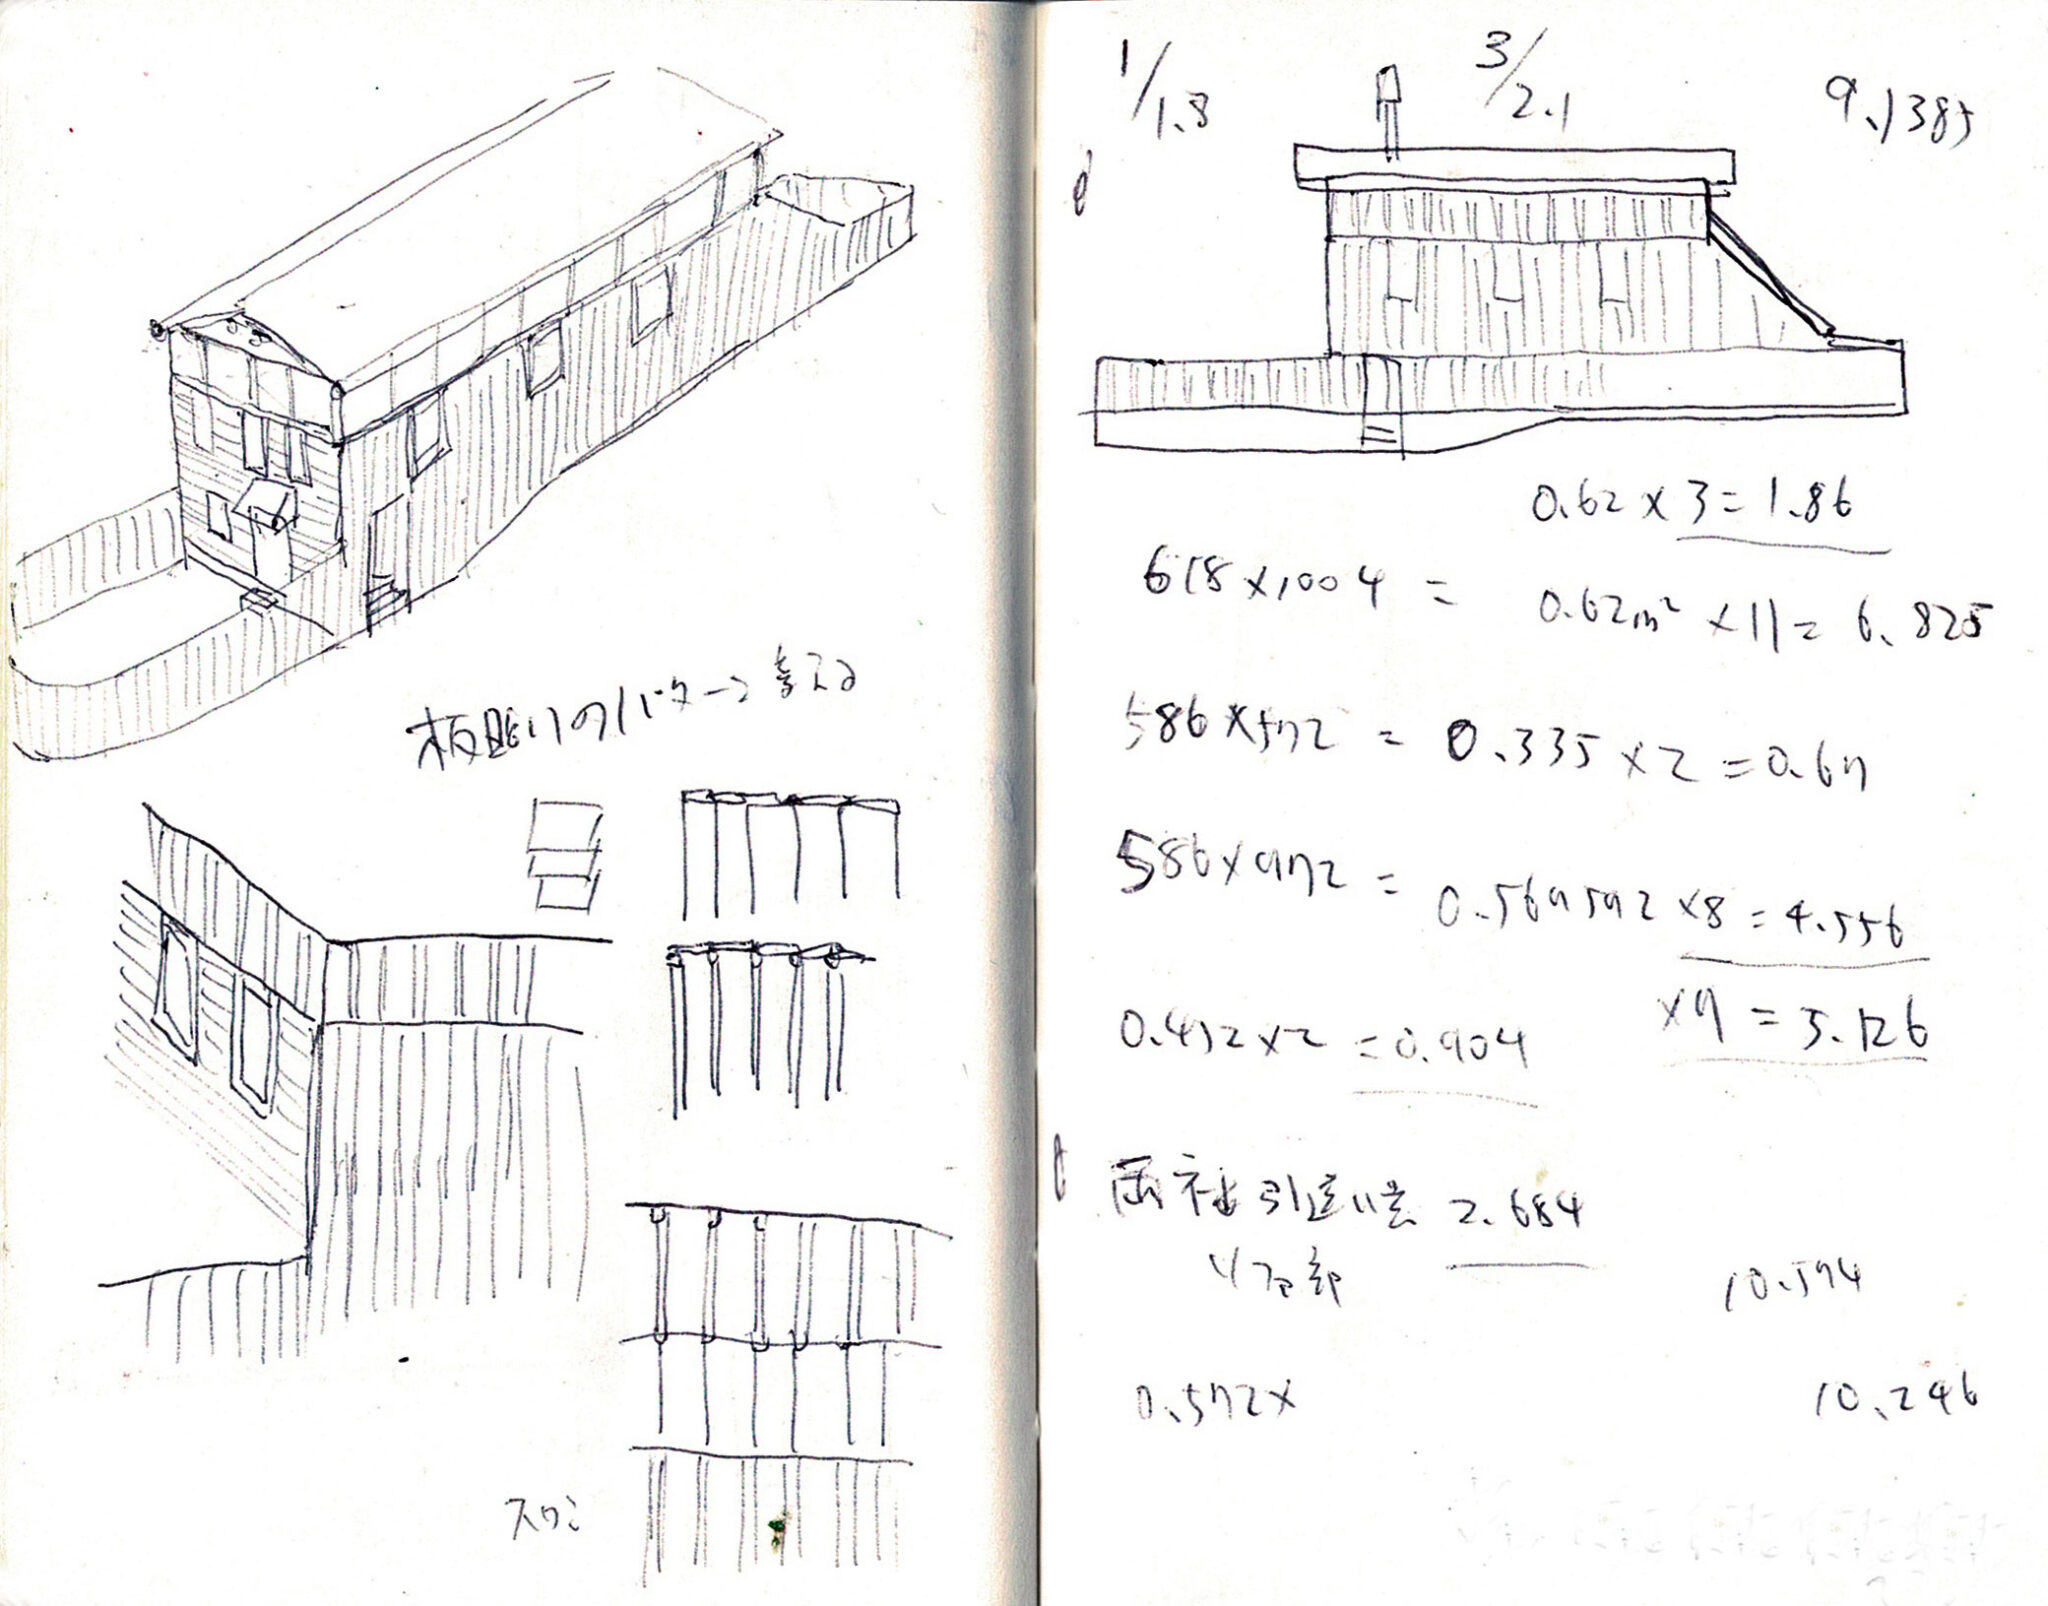 板貼りのパターン考える
スタン
1/1.8
3/2.1
9.1385
0.62 x 3 = 1.86
618 x 1004 = 0.62m² x 11 = 6.825
586 x 572 = 0.335 x 2 = 0.67
586 x 972 = 0.569592 x 8 = 4.556
x 9 = 5.126
0.452 x 2 = 0.904
両袖引違い窓 2.684
10.574
0.572 x
10.246